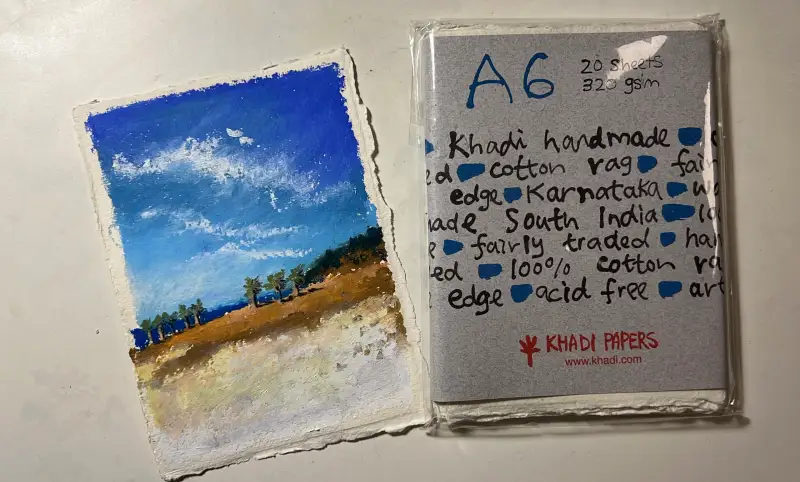 A6
20 sheets
320 gsm
Khadi handmade
ed cotton rag fair
edge Karnataka
ade South India
fairly traded
ed 100% cotton ra
edge acid free art
KHADI PAPERS
www.khadi.com